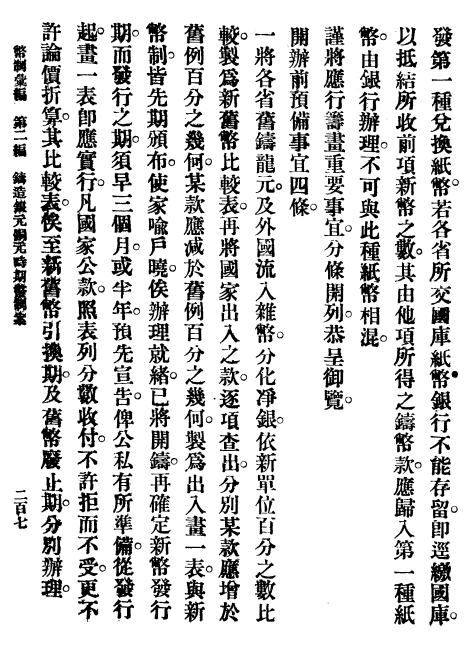 發第一種兌換紙幣。若各省所交國庫紙幣。銀行不能存留。卽逕繳國庫。
以抵結所收前項新幣之數。其由他項所得之鑄幣款。應歸入第一種紙
幣。由銀行辦理。不可與此種紙幣相混。
謹將應行籌畫重要事宜。分條開列。恭呈御覽。
開辦前預備事宜四條。
一將各省舊鑄龍元。及外國流入雜幣。分化凈銀。依新單位百分之數。比
較製爲新舊幣比較表。再將國家出入之款。逐項查出。分別某款應增於
舊例百分之幾何。某款應減於舊例百分之幾何。製爲出入畫一表。與新
幣制皆先期頒布。使家喩戶曉。俟辦理就緒。已將開鑄。再確定新幣發行
期。而發行之期。須早三個月。或半年。預先宣告。俾公私有所準備。從發行
起。畫一表卽應實行。凡國家公款。照表列分數收付。不許拒而不受。更不
許論價折算。其比較表。俟至新舊幣引換期。及舊幣廢止期。分別辦理。
幣制彙編 第二編 鑄造銀元銅元時期幣制案 二百七